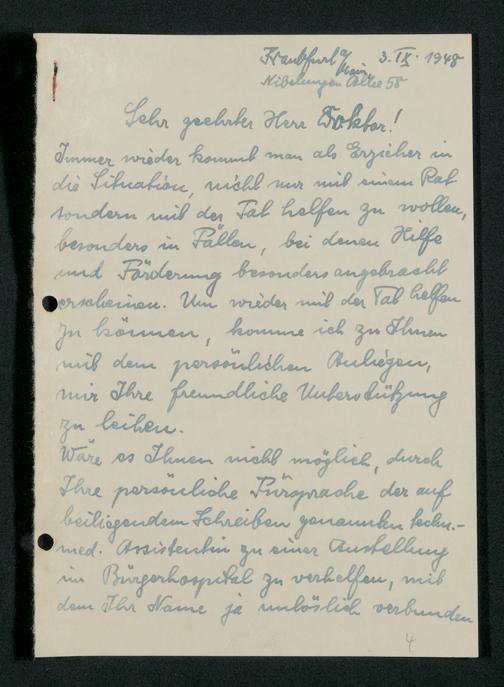 Frankfurt a/Main, 3. IX. 1948
Nibelungen Allee 58
Sehr geehrter Herr Doktor!
Immer wieder kommt man als Erzieher in
die Situation, nicht nur mit einem Rat
sondern mit der Tat helfen zu wollen,
besonders in Fällen, bei denen Hilfe
und Förderung besonders angebracht
erscheinen. Um wieder mit der Tat helfen
zu können, komme ich zu Ihnen
mit dem persönlichen Anliegen,
mir Ihre freundliche Unterstützung
zu leihen.
Wäre es Ihnen nicht möglich, durch
Ihre persönliche Fürsprache der auf
beiliegendem Schreiben genannten techn.-
med. Assistentin zu einer Anstellung
im Bürgerhospital zu verhelfen, mit
dem Ihr Name ja unlöslich verbunden
4